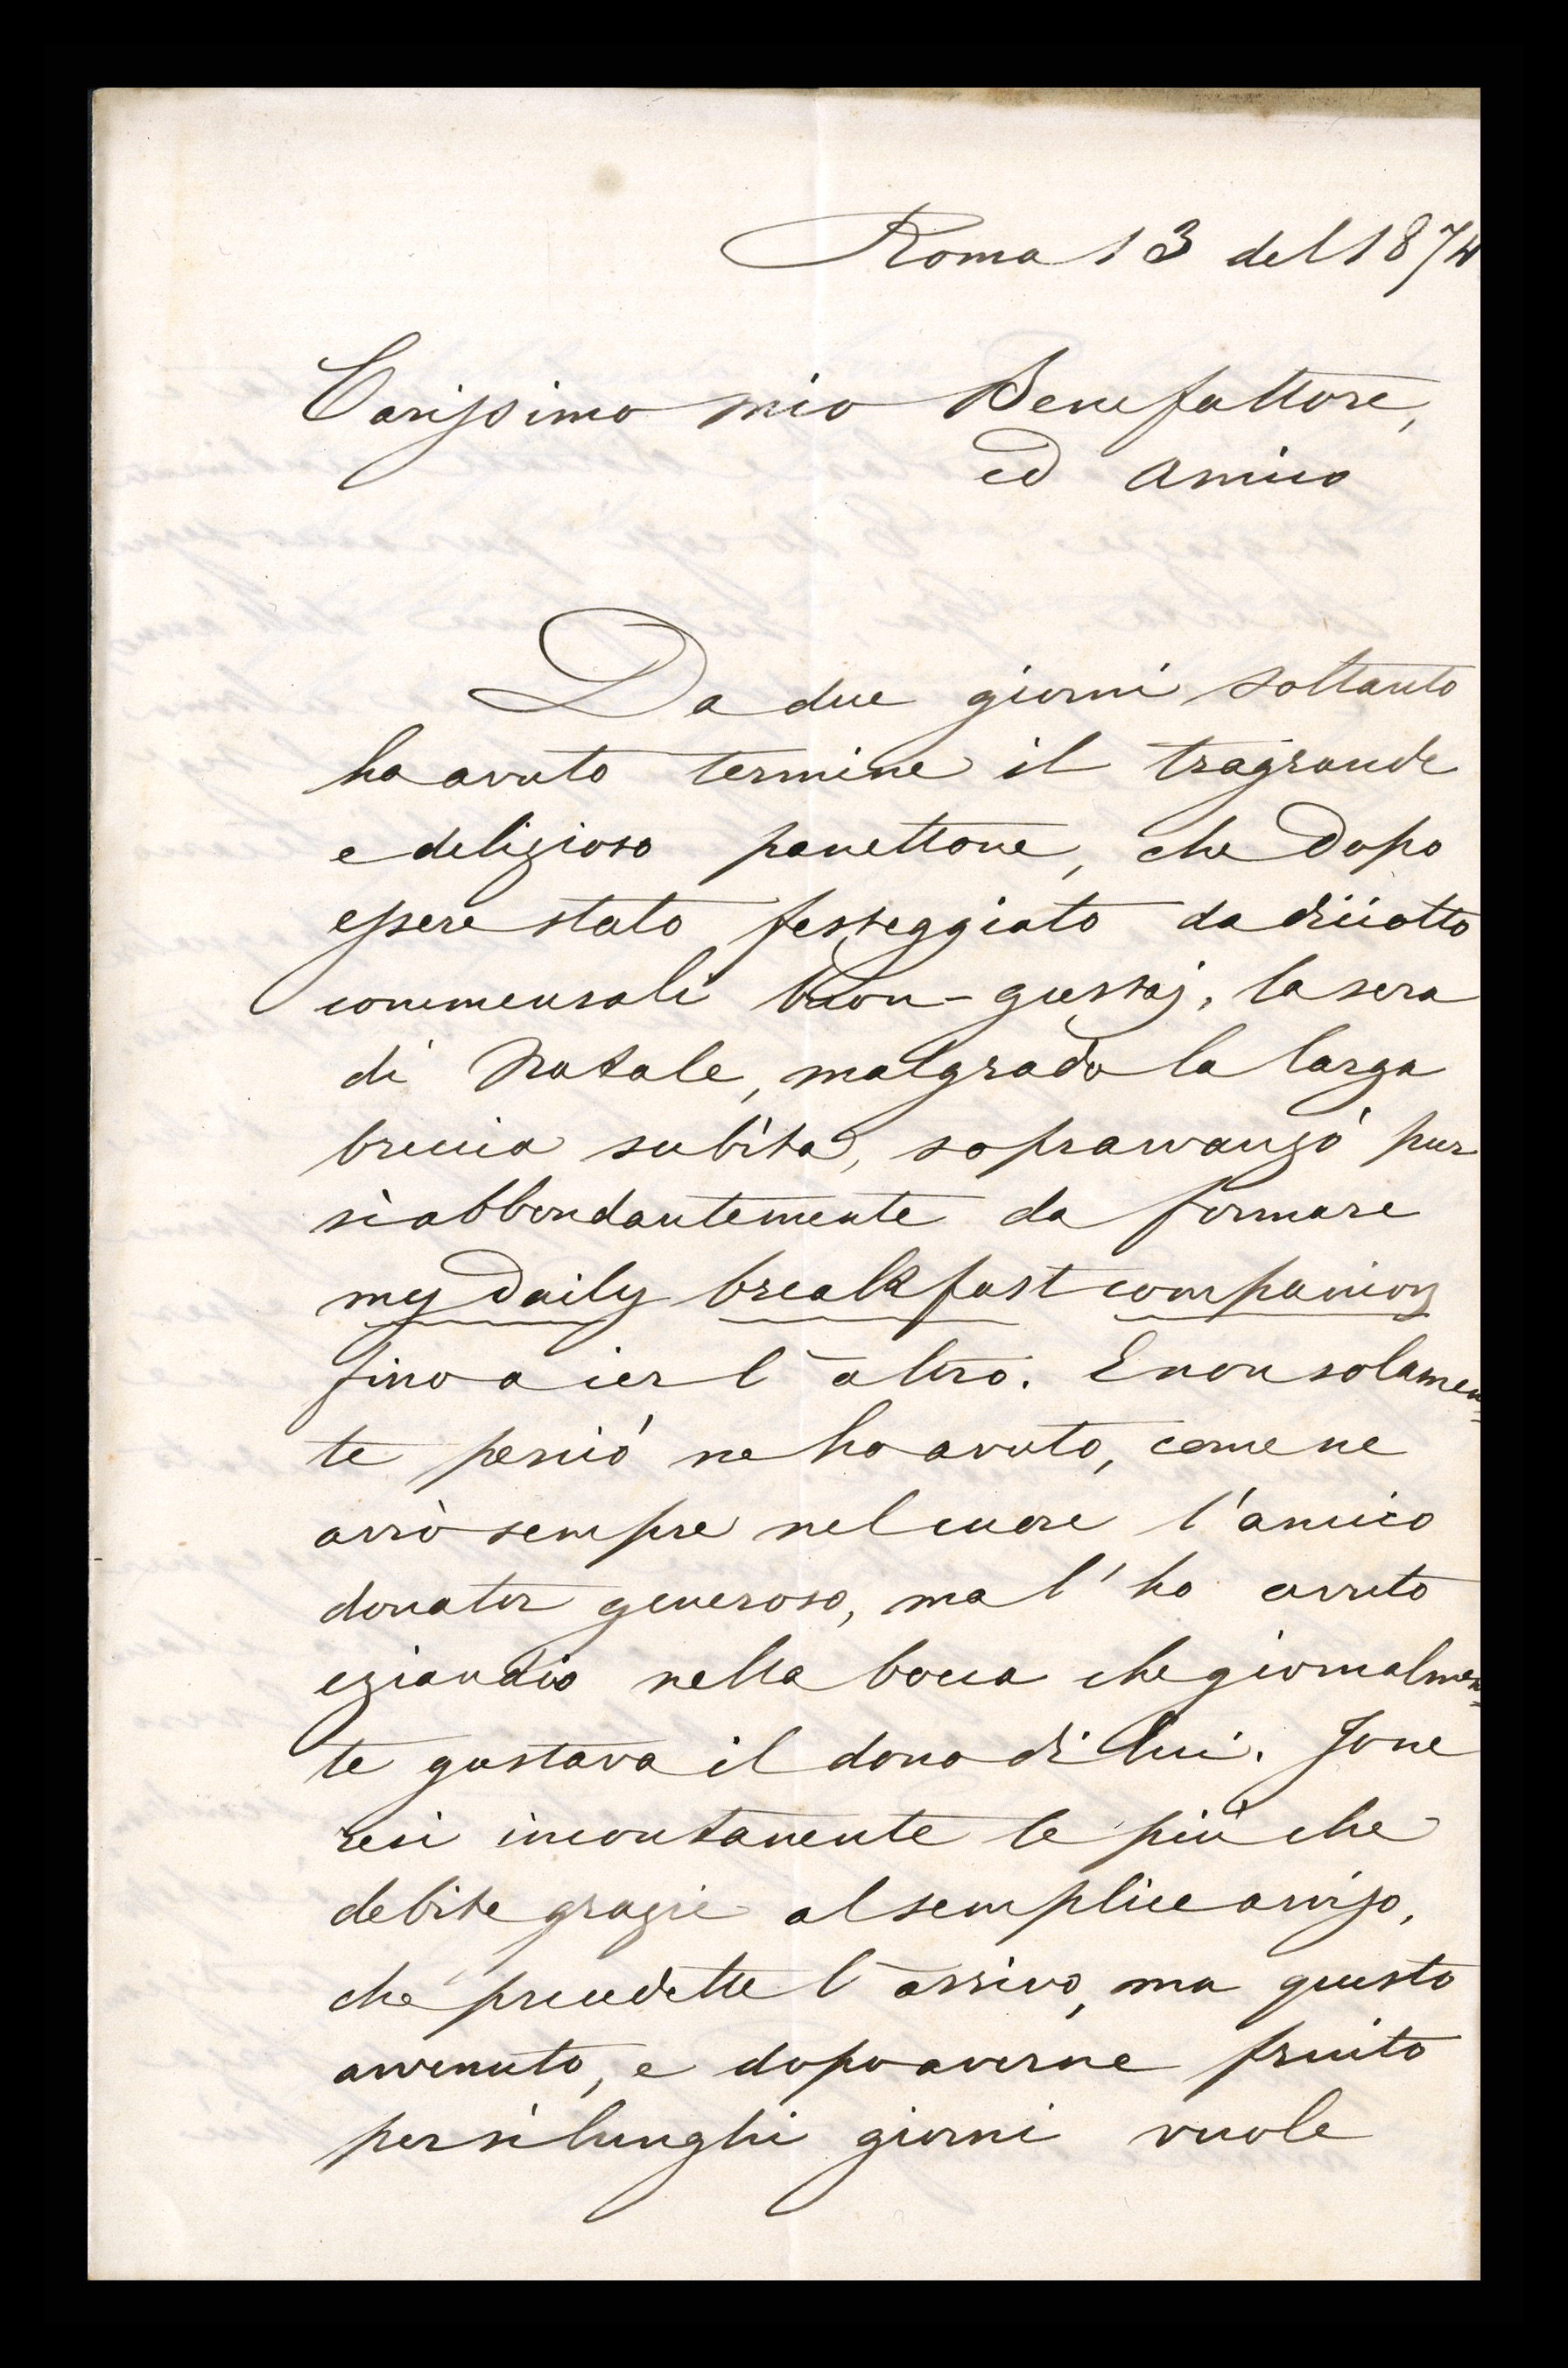 Roma 13 del 1874
Carissimo mio Benefattore,
ed amico
Da due giorni soltanto
ha avuto termine il tragrande
e delizioso panettone, che dopo
essere stato festeggiato da diciotto
commensali buon-gustaj, la sera
di Natale, malgrado la larga
breccia subìta, sopravvanzò pur
sì abbondantemente da formare
my daily breakfast companion
fino a ier l'altro. E non solamen=
te perciò ne ho avuto, come ne
avrò sempre nel cuore l'amico
donator generoso, ma l'ho avuto
eziandio nella bocca che giornalmen=
te gustava il dono di lui. Io ne
resi incontanente le più che
debite grazie al semplice avviso,
che precedette l'arrivo, ma questo
avvenuto, e dopo averne fruito
per sì lunghi giorni vuole